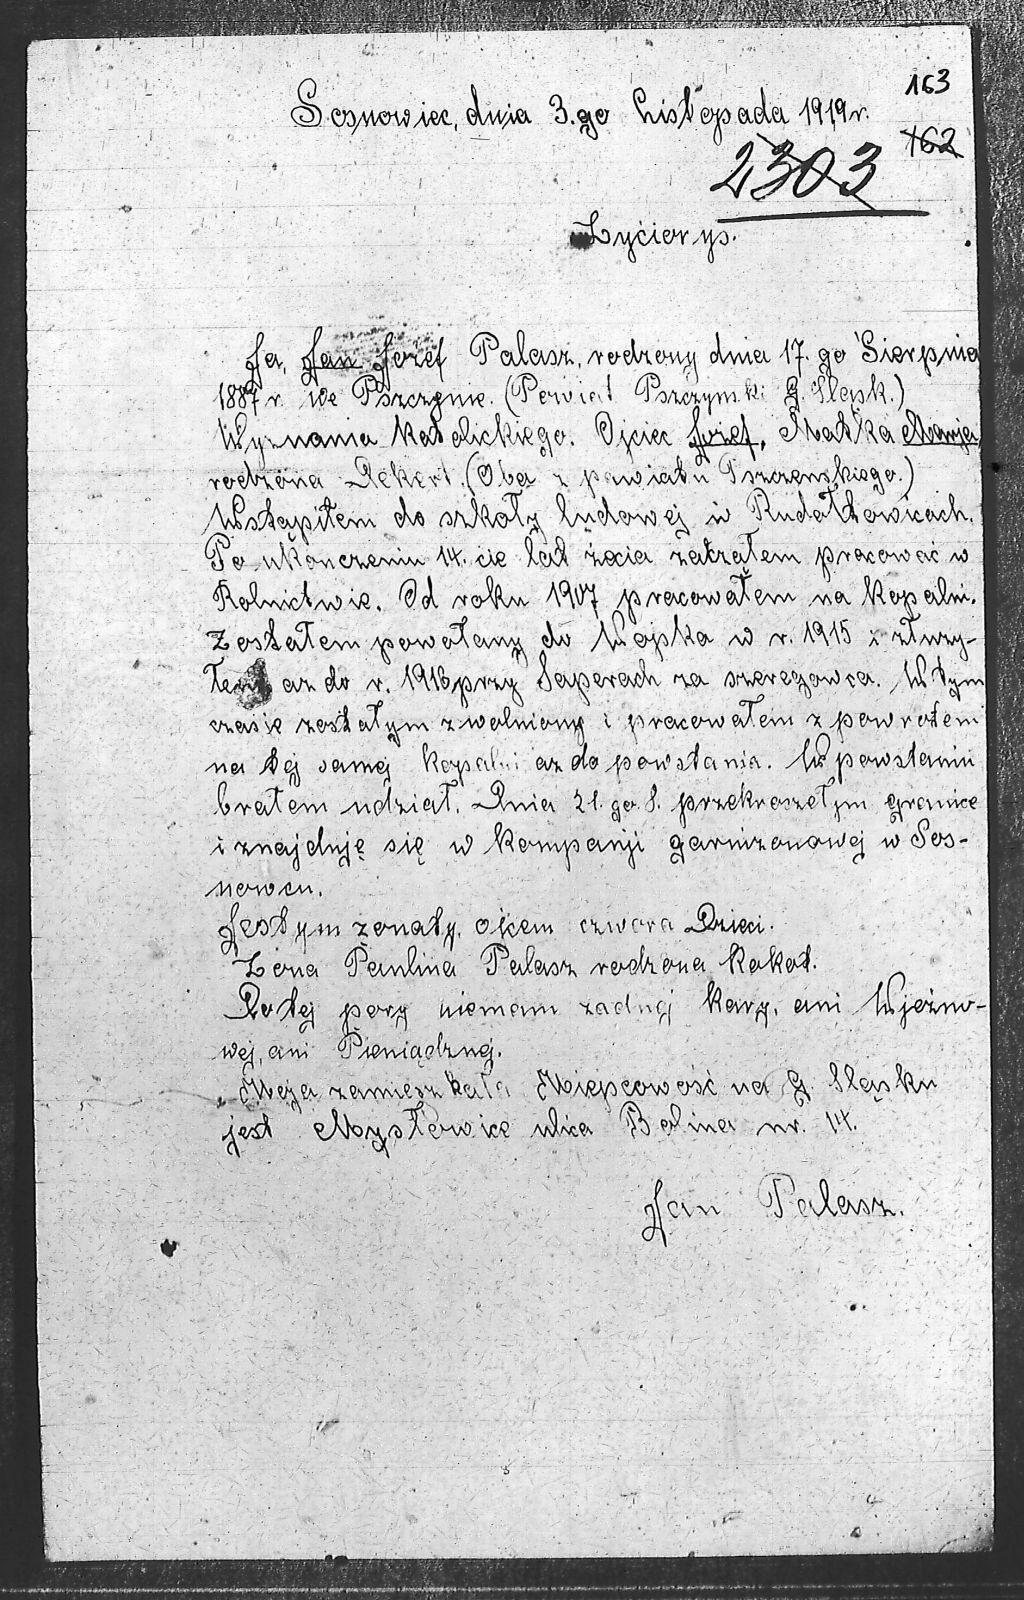 163
Sosnowiec, dnia 3.go Listopada 1919 r.
162
2303
Życiorys.
Ja, Jan Jozef Palasz, rodzony dnia 17.go Sierpnia
1887 r. we Pszczynie. (Powiat Pszczynski G. Sląsk.)
Wyznania katolickiego. Ojciec Jozef, Matka Marja,
rodzona Rekert. (Oba z powiatu Pszczenskiego.)
Wstąpiłem do szkoły ludowej w Rudołtowicach.
Po ukonczeniu 14.cie lat życia zacząłem pracować w
Rolnictwie. Od roku 1907 pracowałem na kopalni.
Zostałem powołany do Wojska w r. 1915 i złurzy-
łem az do r. 1916 przy Saperach za szeregowca. W tym
czasie zostałym zwolniony i pracowałem z powrotem
na tej samej kopalni az do powstania. W powstaniu
brałem udział. Dnia 21.go.8. przekroszełym granice
i znajduję się w kompanji garnizonowej w Sos-
nowcu.
Jestym zonaty, ojcem czwora Dzieci.
Zona Paulina Palasz rodzona Kokot.
Do tej pory niemam zadnej kary, ani Wjeźno-
wej, ani Pieniądznej.
Moja zamieszkała Miejscowość na G. Sląsku
jest Mysłowice ulica Bolina nr. 14.
Jan Palasz.